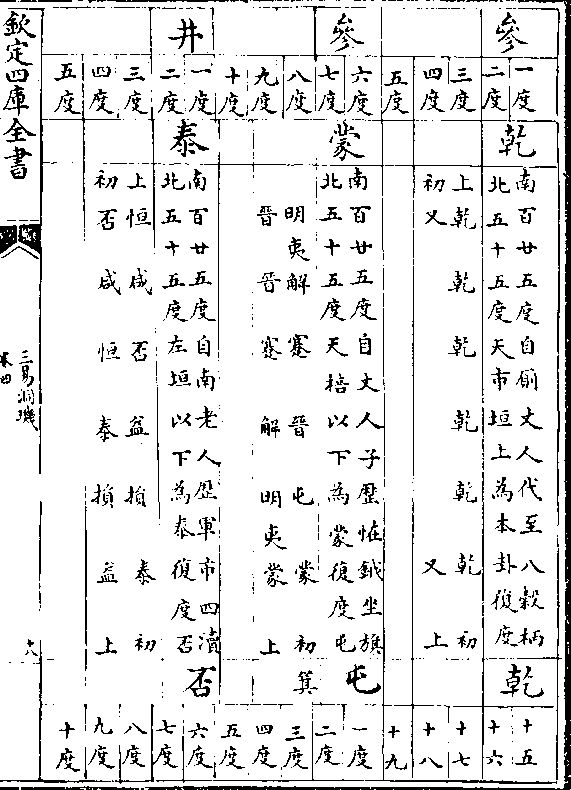 參
參
井
一度
二度
三度
四度
五度
六度
七度
八度
九度
十度
一度
二度
三度
四度
五度
乾
南百廿五度自廁丈人代至八穀柄
北五十五度天市垣上為本卦復度
上乾乾乾乾乾乾初
初又又上
蒙
南百廿五度自丈人子歷怪鉞坐旗
北五十五度天棓以下為蒙復度屯
明夷解蹇晉屯蒙初
晉晉蹇解明夷蒙上
泰
南百廿五度自南老人歷軍市四瀆
北五十五度左垣以下為泰復度否
上恒咸否益損泰初
初否咸恒泰損益上
乾
屯
箕
否
十五
十六
十七
十八
十九
一度
二度
三度
四度
五度
六度
七度
八度
九度
十度
欽定四庫全書
三易洞璣
卷四
十八